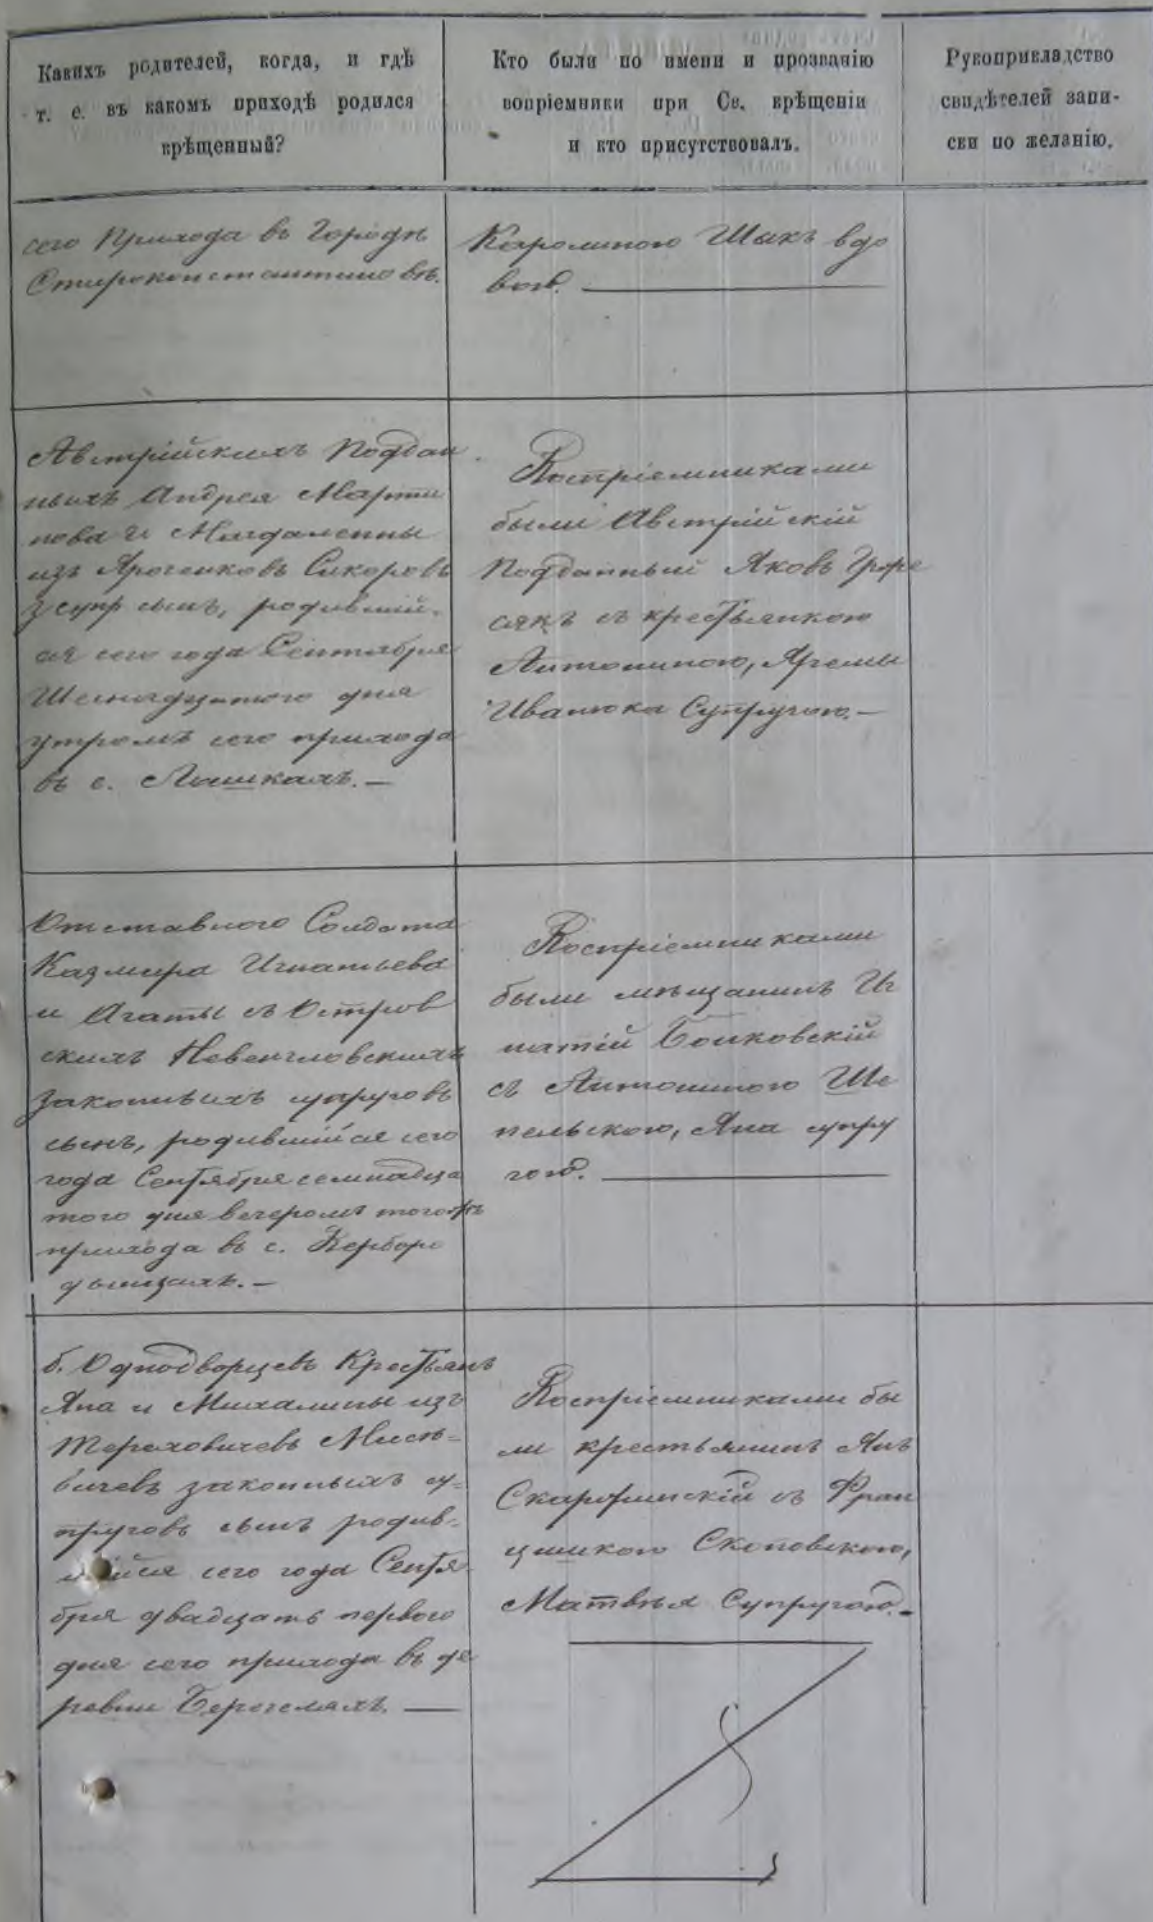 Какихъ родителей, когда, и гдѣ
т. е. въ какомъ приходѣ родился
крѣщенный?
Кто были по имени и прозванію
вопріемники при Св. крѣщеніи
и кто присутствовалъ.
Рукоприкладство
свидѣтелей запи-
ски по желанію.
сего Прихода въ Городѣ
Староконстантиновѣ.
Каролиною Шакъ вдо
вою.
Австрійскихъ Поддан
ныхъ Андрея Марти
нова и Магдалены
изъ
супр сынъ, родившій-
ся сего года Сентября
Шеснадцатого дня
утромъ сего прихода
въ с. Пашкахъ. —
Воспріемниками
были Австрійскій
Подданный Яковъ
съ крестьянкою
Антониною, Яремы
Иванюка Супругою. —
Отставного Солдата
Казмира Игнатьева
и Агаты съ Остров
скихъ
законныхъ супруговъ
сынъ, родившійся сего
года Сентября семнадца
того дня вечеромъ тогожъ
прихода въ с. Верборо
дынцахъ. —
Воспріемниками
были мѣщанинъ Иг
натій
съ Антониною Ше
пельскою, Яна супру
гою.
б. Однодворцевъ Крестьянъ
Яна и Михалины изъ
Тереховичевъ
законныхъ су-
пруговъ сынъ родив-
шійся сего года Сентя
бря двадцать первого
дня сего прихода въ де
ревни
Воспріемниками бы
ли крестьянинъ Янъ
Скаржинскій съ Фран
цишкою Скоповскою,
Матвѣя Супругою. —